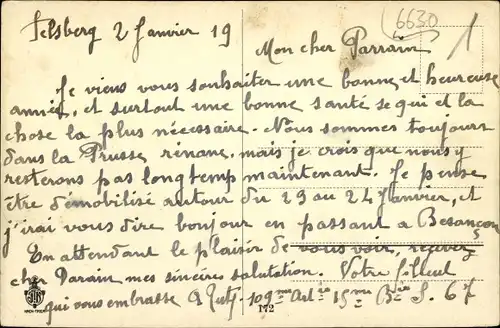 Felsberg 2 Janvier 19
6630
1
Mon cher Parrain
Je viens vous souhaiter une bonne et heureuse
année, et surtout une bonne santé se qui et la
chose la plus nécessaire. Nous sommes toujours
dans la Prusse rénane, mais je crois que nous y
resterons pas longtemp maintenant. Je pense
être démobilisé autour du 23 au 24 Janvier, et
j'irai vous dire bonjour en passant a Besançon
En attendant le plaisir de vous voir, recevez
cher Parain mes sincères salutation. Votre filleul
qui vous embrasse 109me Art ie 15me Bie S. P. 67
172